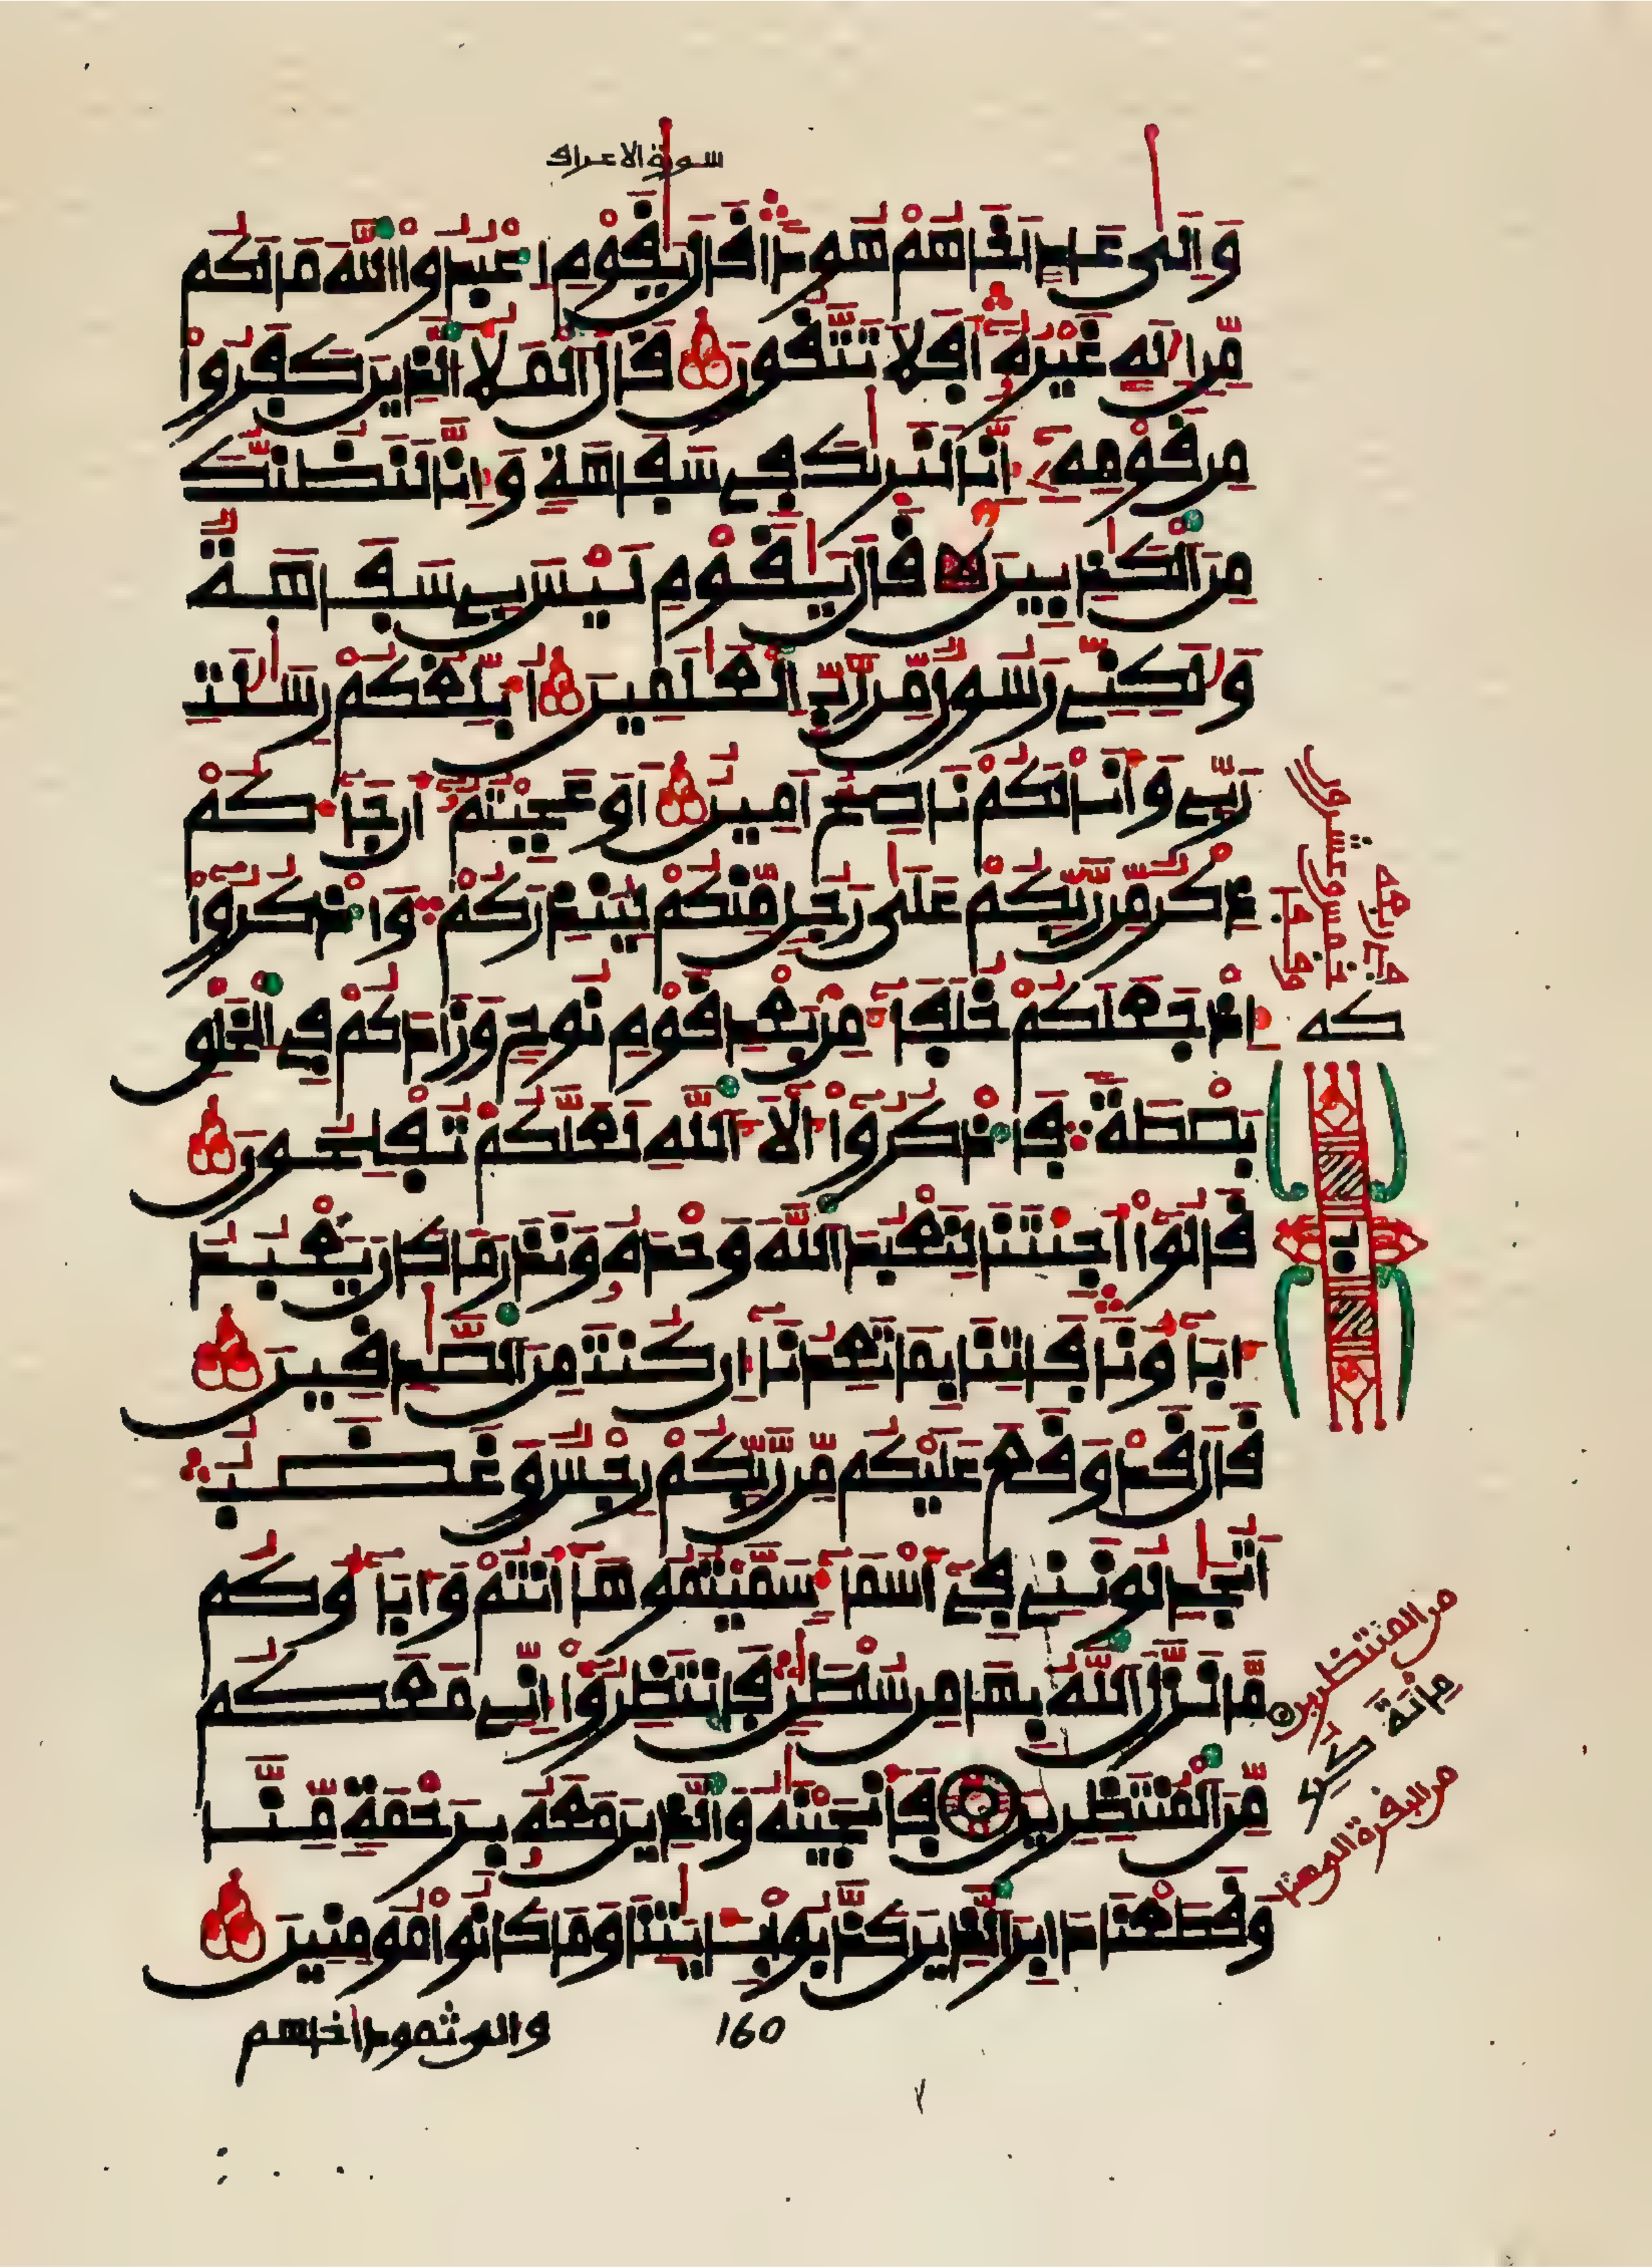 سورة الاعراف
وَإِلَىٰ عَادٍ أَخَاهُمْ هُودًا قَالَ يَٰقَوْمِ اِعْبُدُوا اللَّهَ مَا لَكُم
مِّنِ الَٰهٍ غَيْرُهُۥ أَفَلَا تَتَّقُونَ قَالَ الْمَلَأُ الَّذِينَ كَفَرُوا
مِن قَوْمِهِۦ إِنَّا لَنَرَىٰكَ فِي سَفَاهَةٍ وَإِنَّا لَنَظُنُّكَ
مِنَ الْكَٰذِبِينَ قَالَ يَٰقَوْمِ لَيْسَ بِي سَفَاهَةٌ
وَلَٰكِنِّي رَسُولٌ مِّن رَّبِّ الْعَٰلَمِينَ أُبَلِّغُكُمْ رِسَٰلَٰتِ
رَبِّي وَأَنَا لَكُمْ نَاصِحٌ أَمِينٌ أَوَعَجِبْتُمْ أَن جَآءَكُمْ
ذِكْرٌ مِّن رَّبِّكُمْ عَلَىٰ رَجُلٍ مِّنكُمْ لِيُنذِرَكُمْ وَاذْكُرُوا
إِذْ جَعَلَكُمْ خُلَفَآءَ مِن بَعْدِ قَوْمِ نُوحٍ وَزَادَكُمْ فِي الْخَلْقِ
بَصْطَةً فَاذْكُرُوا ءَالَآءَ اللَّهِ لَعَلَّكُمْ تُفْلِحُونَ
قَالُوا أَجِئْتَنَا لِنَعْبُدَ اللَّهَ وَحْدَهُۥ وَنَذَرَ مَا كَانَ يَعْبُدُ
ءَابَآؤُنَا فَاتِنَا بِمَا تَعِدُنَآ إِن كُنتَ مِنَ الصَّٰدِقِينَ
قَالَ قَدْ وَقَعَ عَلَيْكُم مِّن رَّبِّكُمْ رِجْسٌ وَغَضَبٌ
أَتُجَٰدِلُونَنِي فِيٓ أَسْمَآءٍ سَمَّيْتُمُوهَآ أَنتُمْ وَءَابَآؤُكُم
مَّا نَزَّلَ اللَّهُ بِهَا مِن سُلْطَٰنٍ فَانتَظِرُوٓا إِنِّي مَعَكُم
مِّنَ الْمُنتَظِرِينَ فَأَنجَيْنَٰهُ وَالَّذِينَ مَعَهُۥ بِرَحْمَةٍ مِّنَّا
وَقَطَعْنَا دَابِرَ الَّذِينَ كَذَّبُوا بِـَٔايَٰتِنَا وَمَا كَانُوا مُومِنِينَ
كه
ب
من المنتظرين
مائة
من البقرة الى هنا
والى ثمود اخاهم
160
٧